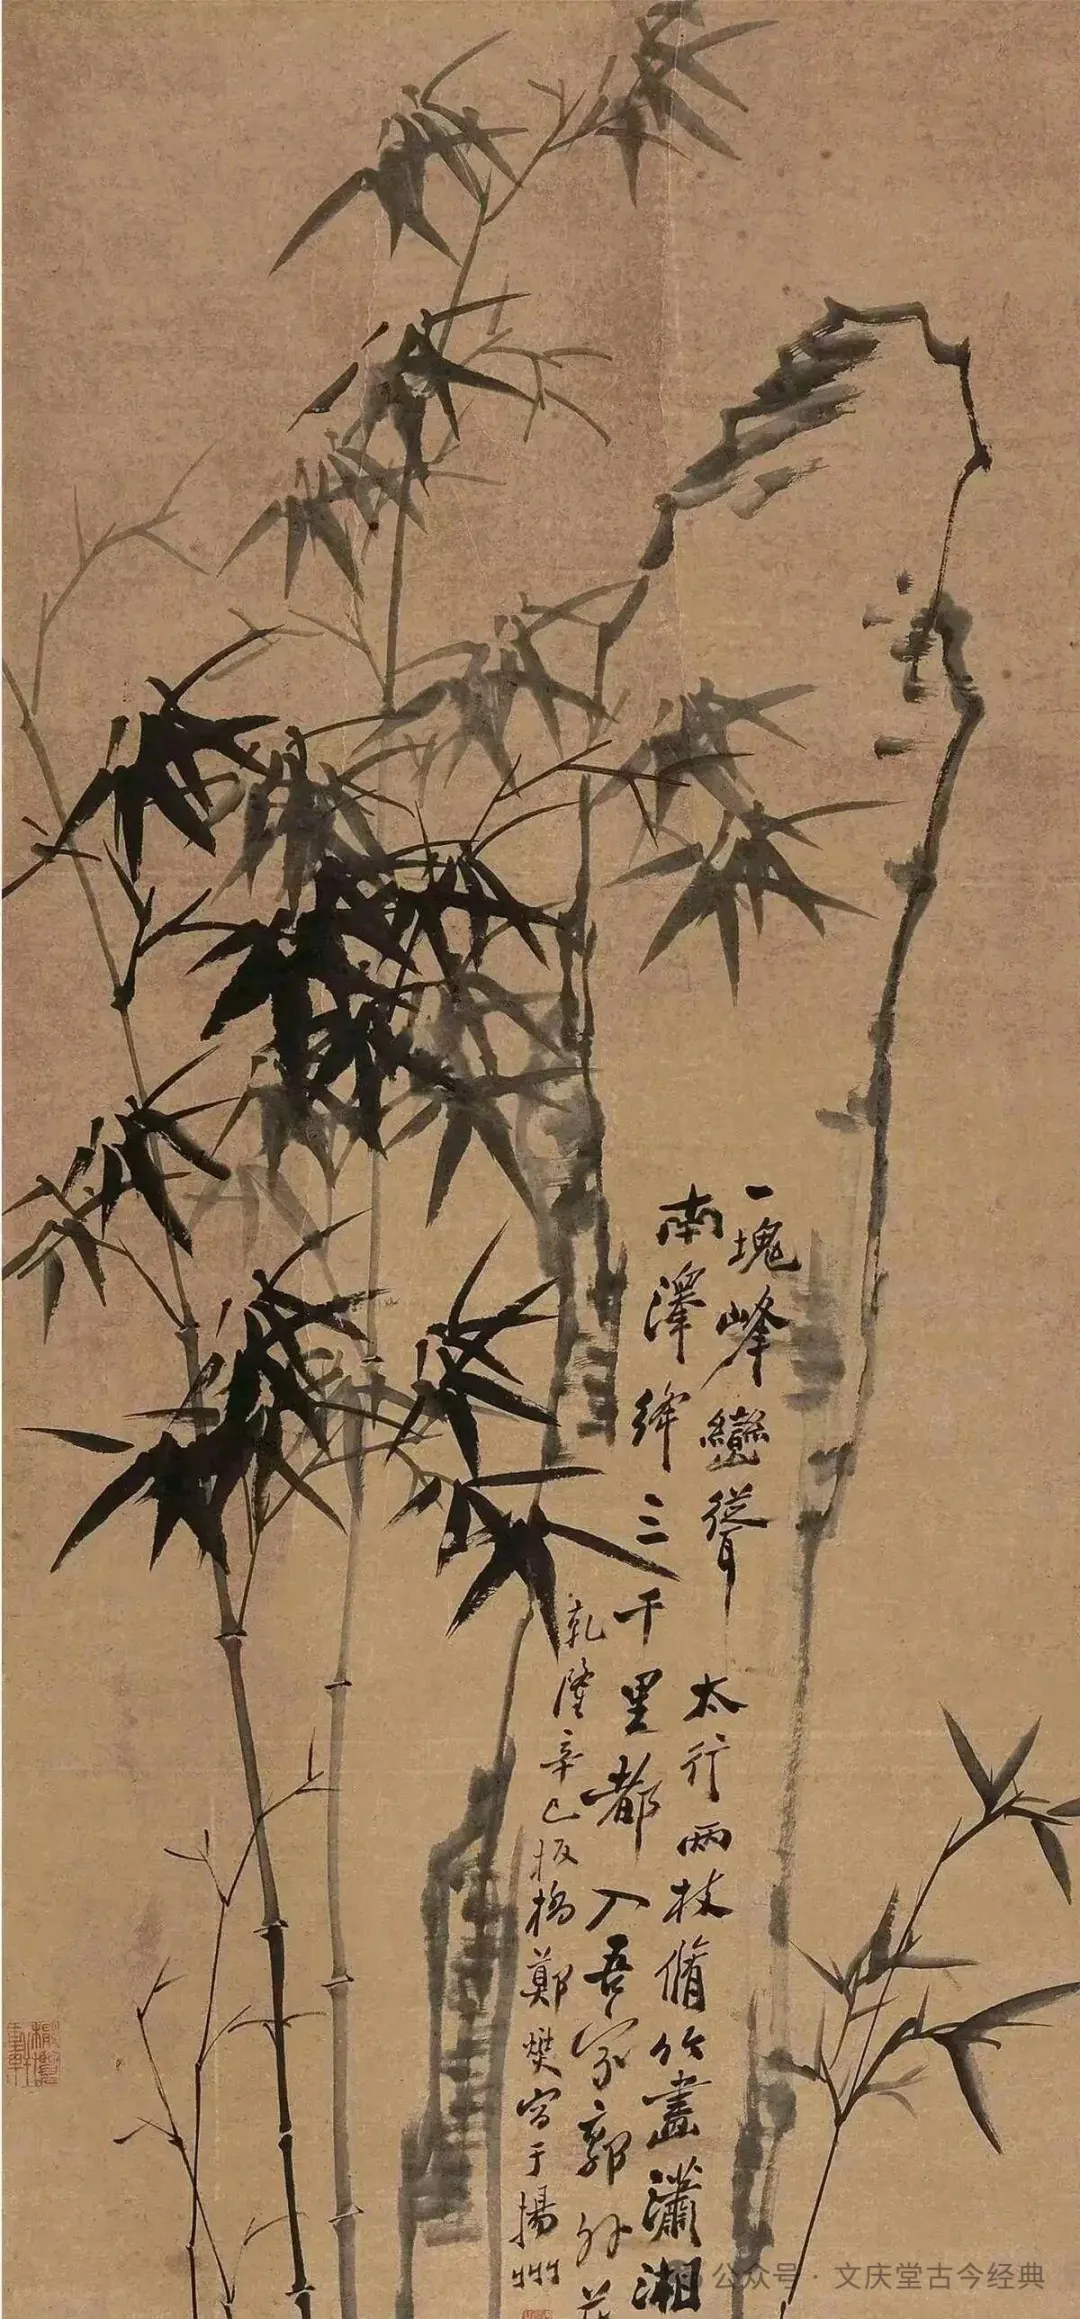 一塊峰巒聳太行兩枝脩竹畫瀟湘
南澤絳三千里都入吾家郭外
乾隆辛巳板橋鄭燮寫于揚州
公众号 · 文庆堂古今经典